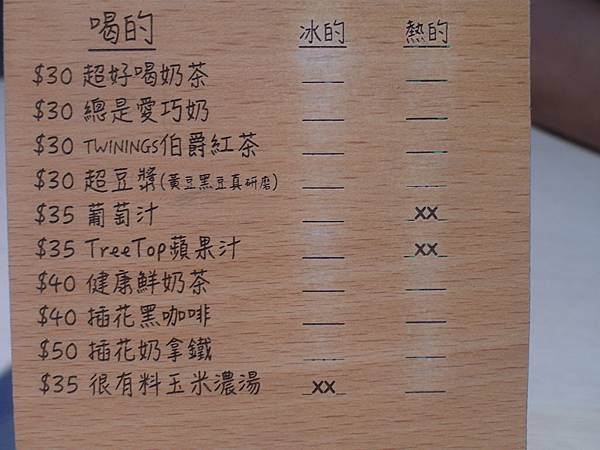 喝的 冰的 熱的
$30 超好喝奶茶
$30 總是愛巧奶
$30 TWININGS伯爵紅茶
$30 超豆漿(黃豆黑豆真研磨)
$35 葡萄汁 XX
$35 TreeTop蘋果汁 XX
$40 健康鮮奶茶
$40 插花黑咖啡
$50 插花奶拿鐵
$35 很有料玉米濃湯 XX